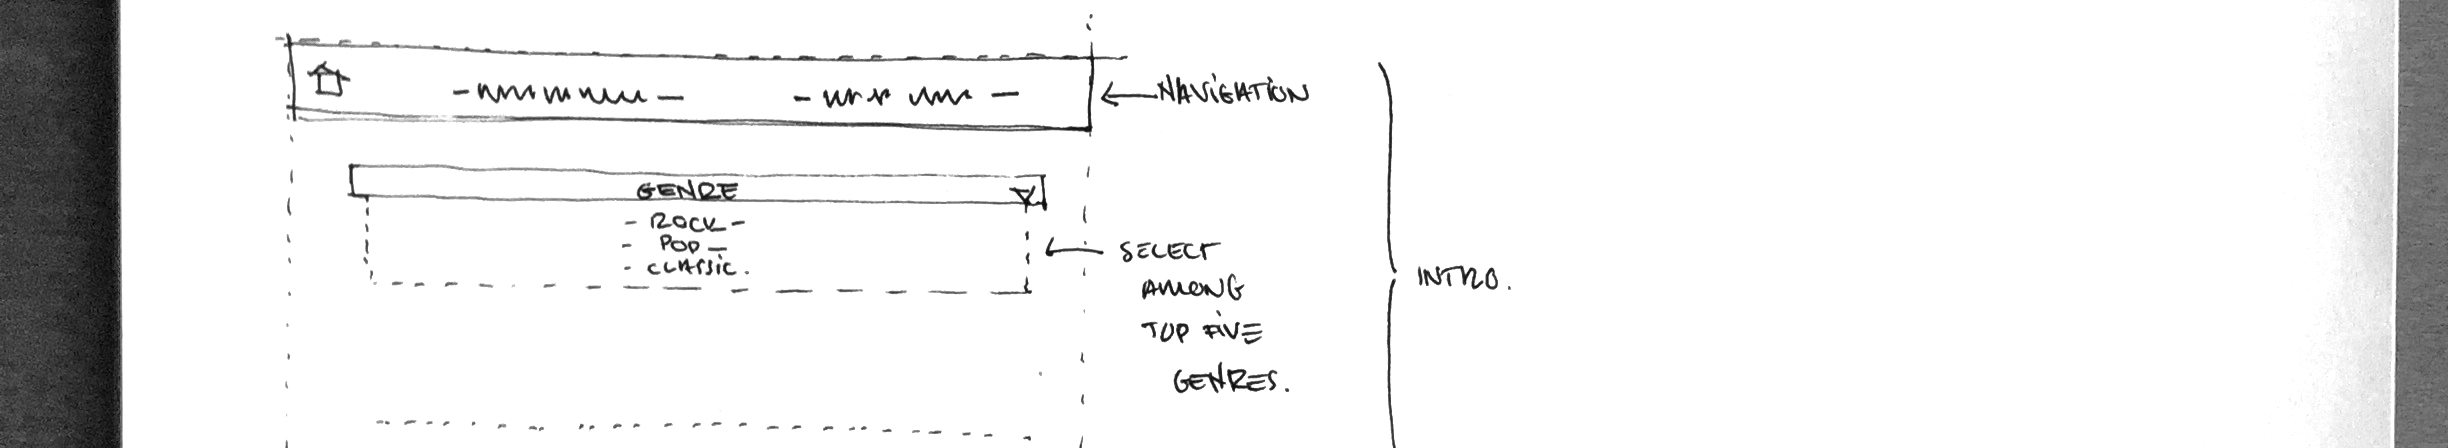 NAVIGATION
GENRE
- ROCK -
- POP -
- CLASSIC.
SELECT
AMONG
TOP FIVE
GENRES.
INTRO.